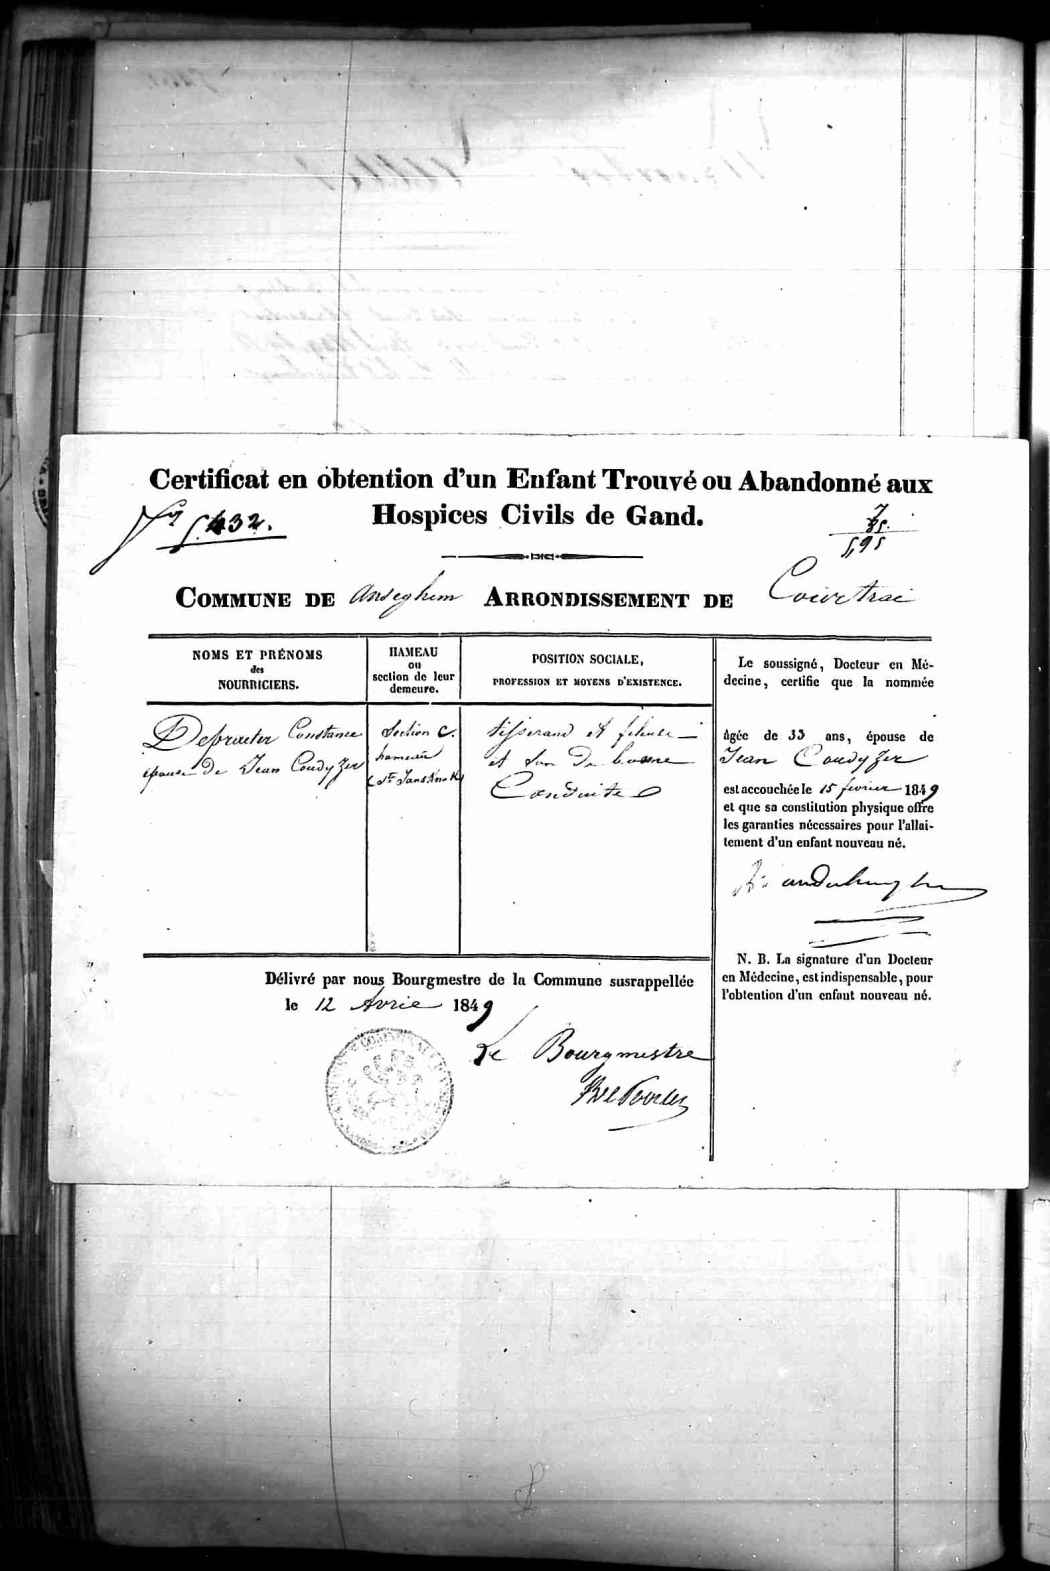 Certificat en obtention d'un Enfant Trouvé ou Abandonné aux
Hospices Civils de Gand.
432.
7
35.
5,95
COMMUNE DE Anseghem ARRONDISSEMENT DE Courtrai
NOMS ET PRÉNOMS
des
NOURRICIERS.
HAMEAU
ou
section de leur
demeure.
POSITION SOCIALE,
PROFESSION ET MOYENS D'EXISTENCE.
Depraeter Constance
épouse de Jean Coudyzer
Section C.
hameau
tisserand et fileuse
et son de bonne
Conduite
Le soussigné, Docteur en Mé-
decine, certifie que la nommée
âgée de 33 ans, épouse de
Jean Coudyzer
est accouchée le 15 fevrier 1849
et que sa constitution physique offre
les garanties nécessaires pour l'allai-
tement d'un enfant nouveau né.
N. B. La signature d'un Docteur
en Médecine, est indispensable, pour
l'obtention d'un enfant nouveau né.
Délivré par nous Bourgmestre de la Commune susrappellée
le 12 Avril 1849
Le Bourgmestre